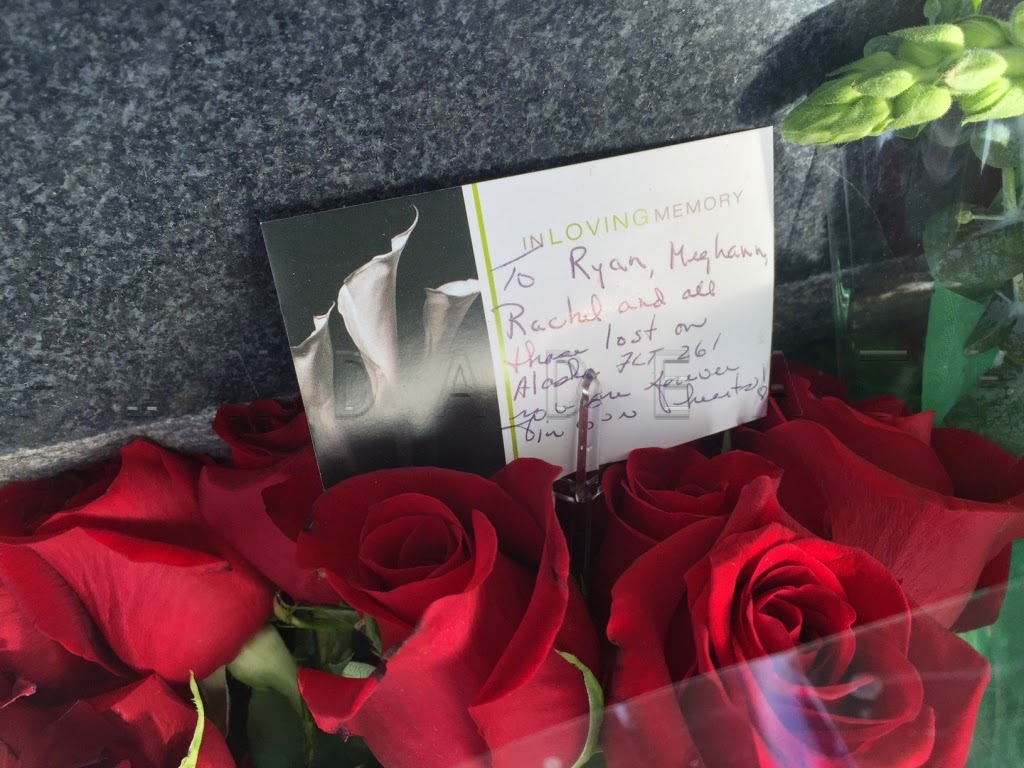 IN LOVING MEMORY
To Ryan, Meghann,
Rachel and all
those lost on
Alaska FLT 261
you are forever
in our hearts!
DADE